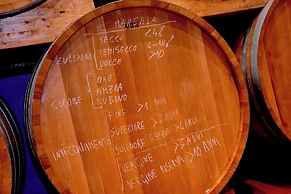 MARSALA
SECCO <40
ZUCCHERI SEMISECCO <40>
DOLCE >10
ORO
COLORE AMBRA
RUBINO
FINE >1 ANNO
SUPERIORE >2 ANNI
INVECCHIAMENTO SUPERIORE RISERVA >4 ANNI
VERGINE >5 ANNI
VERGINE RISERVA >10 ANNI